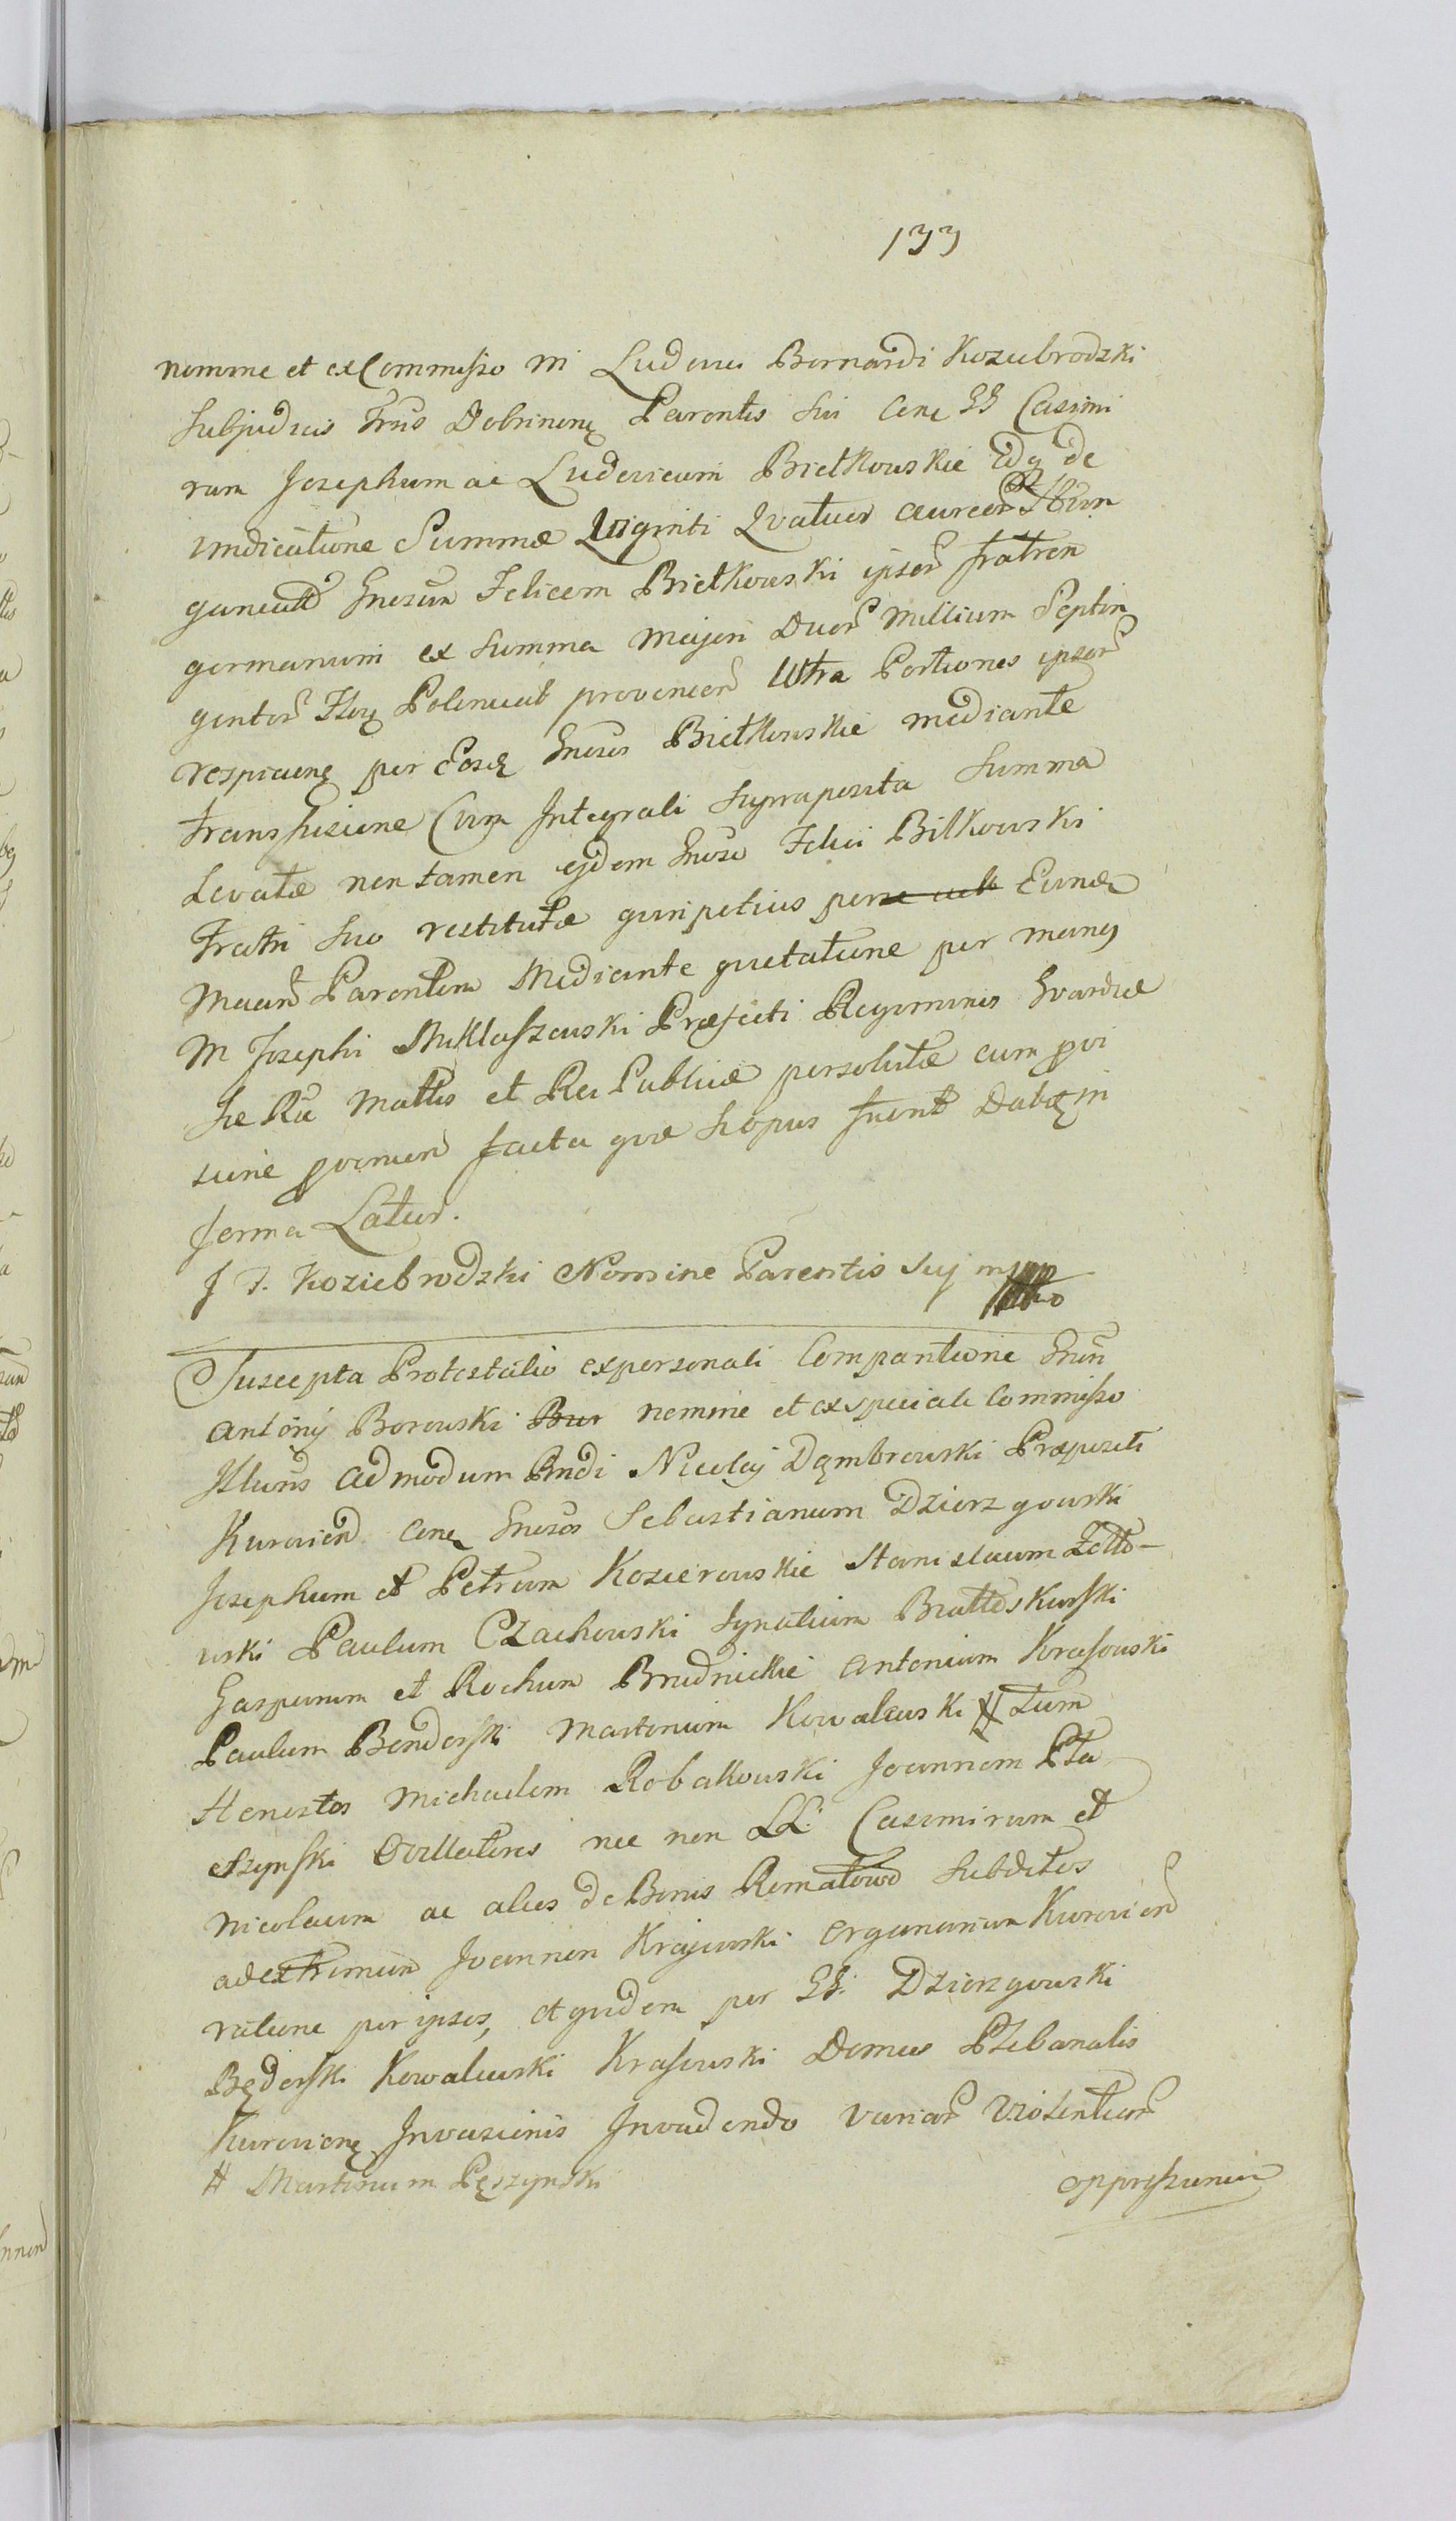 133
nomine et ex Commisso M Ludovici Bernardi Koziebrodzki
Subjudicis Trris Dobrinens Parentis Sui Cone GG Casimi
rum Josephum ac Ludovicum Biełkowskie Idq de
vindicatione Summæ Viginti Quatuor aureor Hun
garicalium Gnosum Felicem Biełkowski ipsor fratrem
germanum ex Summa Majori Duor Millium Septin
gentor Flor Polonical provenien Ultra Portiones ipsor
respicien per Eosd Gnosos Biełkowskie mediante
transfusione Cum Integrali Supraposita Summa
Levatæ non tamen ejdem Gnoso Felici Bilkowski
Fratri Suo restitutæ quinpotius per Eund
Mann Parentem Mediante quietatione per manus
M Josephi Miklaszewski Præfecti Regiminis Gvardiæ
Sæ Ræ Mattis et Rei Publicæ persolutæ cum provi
sione proemen facta quæ Si opus fuerit Dabit in
forma Latior.
J J. Koziebrodzki Nomine Parentis Suj mpp
Suscepta Protestatio ex personali Comparitione Gnsi
Antonij Borowski nomine et ex speciali Commisso
Illuris Admodum Rndi Nicolaj Dąmbrowski Præpositi
Kurovien Cone Gnosos Sebastianum Dzierzgowski
Josephum et Petrum Kozierowskie Stanislaum Zołto-
wski Paulum Czachowski Ignatium Brattoskurski
Gasparum et Rochum Brudnickie Antonium Krasowski
Paulum Benderski Martinum Kowalewski # tum
Honestos Michaelem Robakowski Joannem Pta
szynski Ovillatores nec non LL: Casimirum et
Nicolaum ac alios de Bonis Romatowo Subditos
ad extremum Joannem Krajewski Organarium Kurovien
ratione per ipsos, et quidem per GG: Dzierzgowski
Będerski Kowalewski Krasowski Domus Plebanalis
Kurovien Invasionis Invadendo variar Violentiar
# Martinum Pęszynski
oppressionum